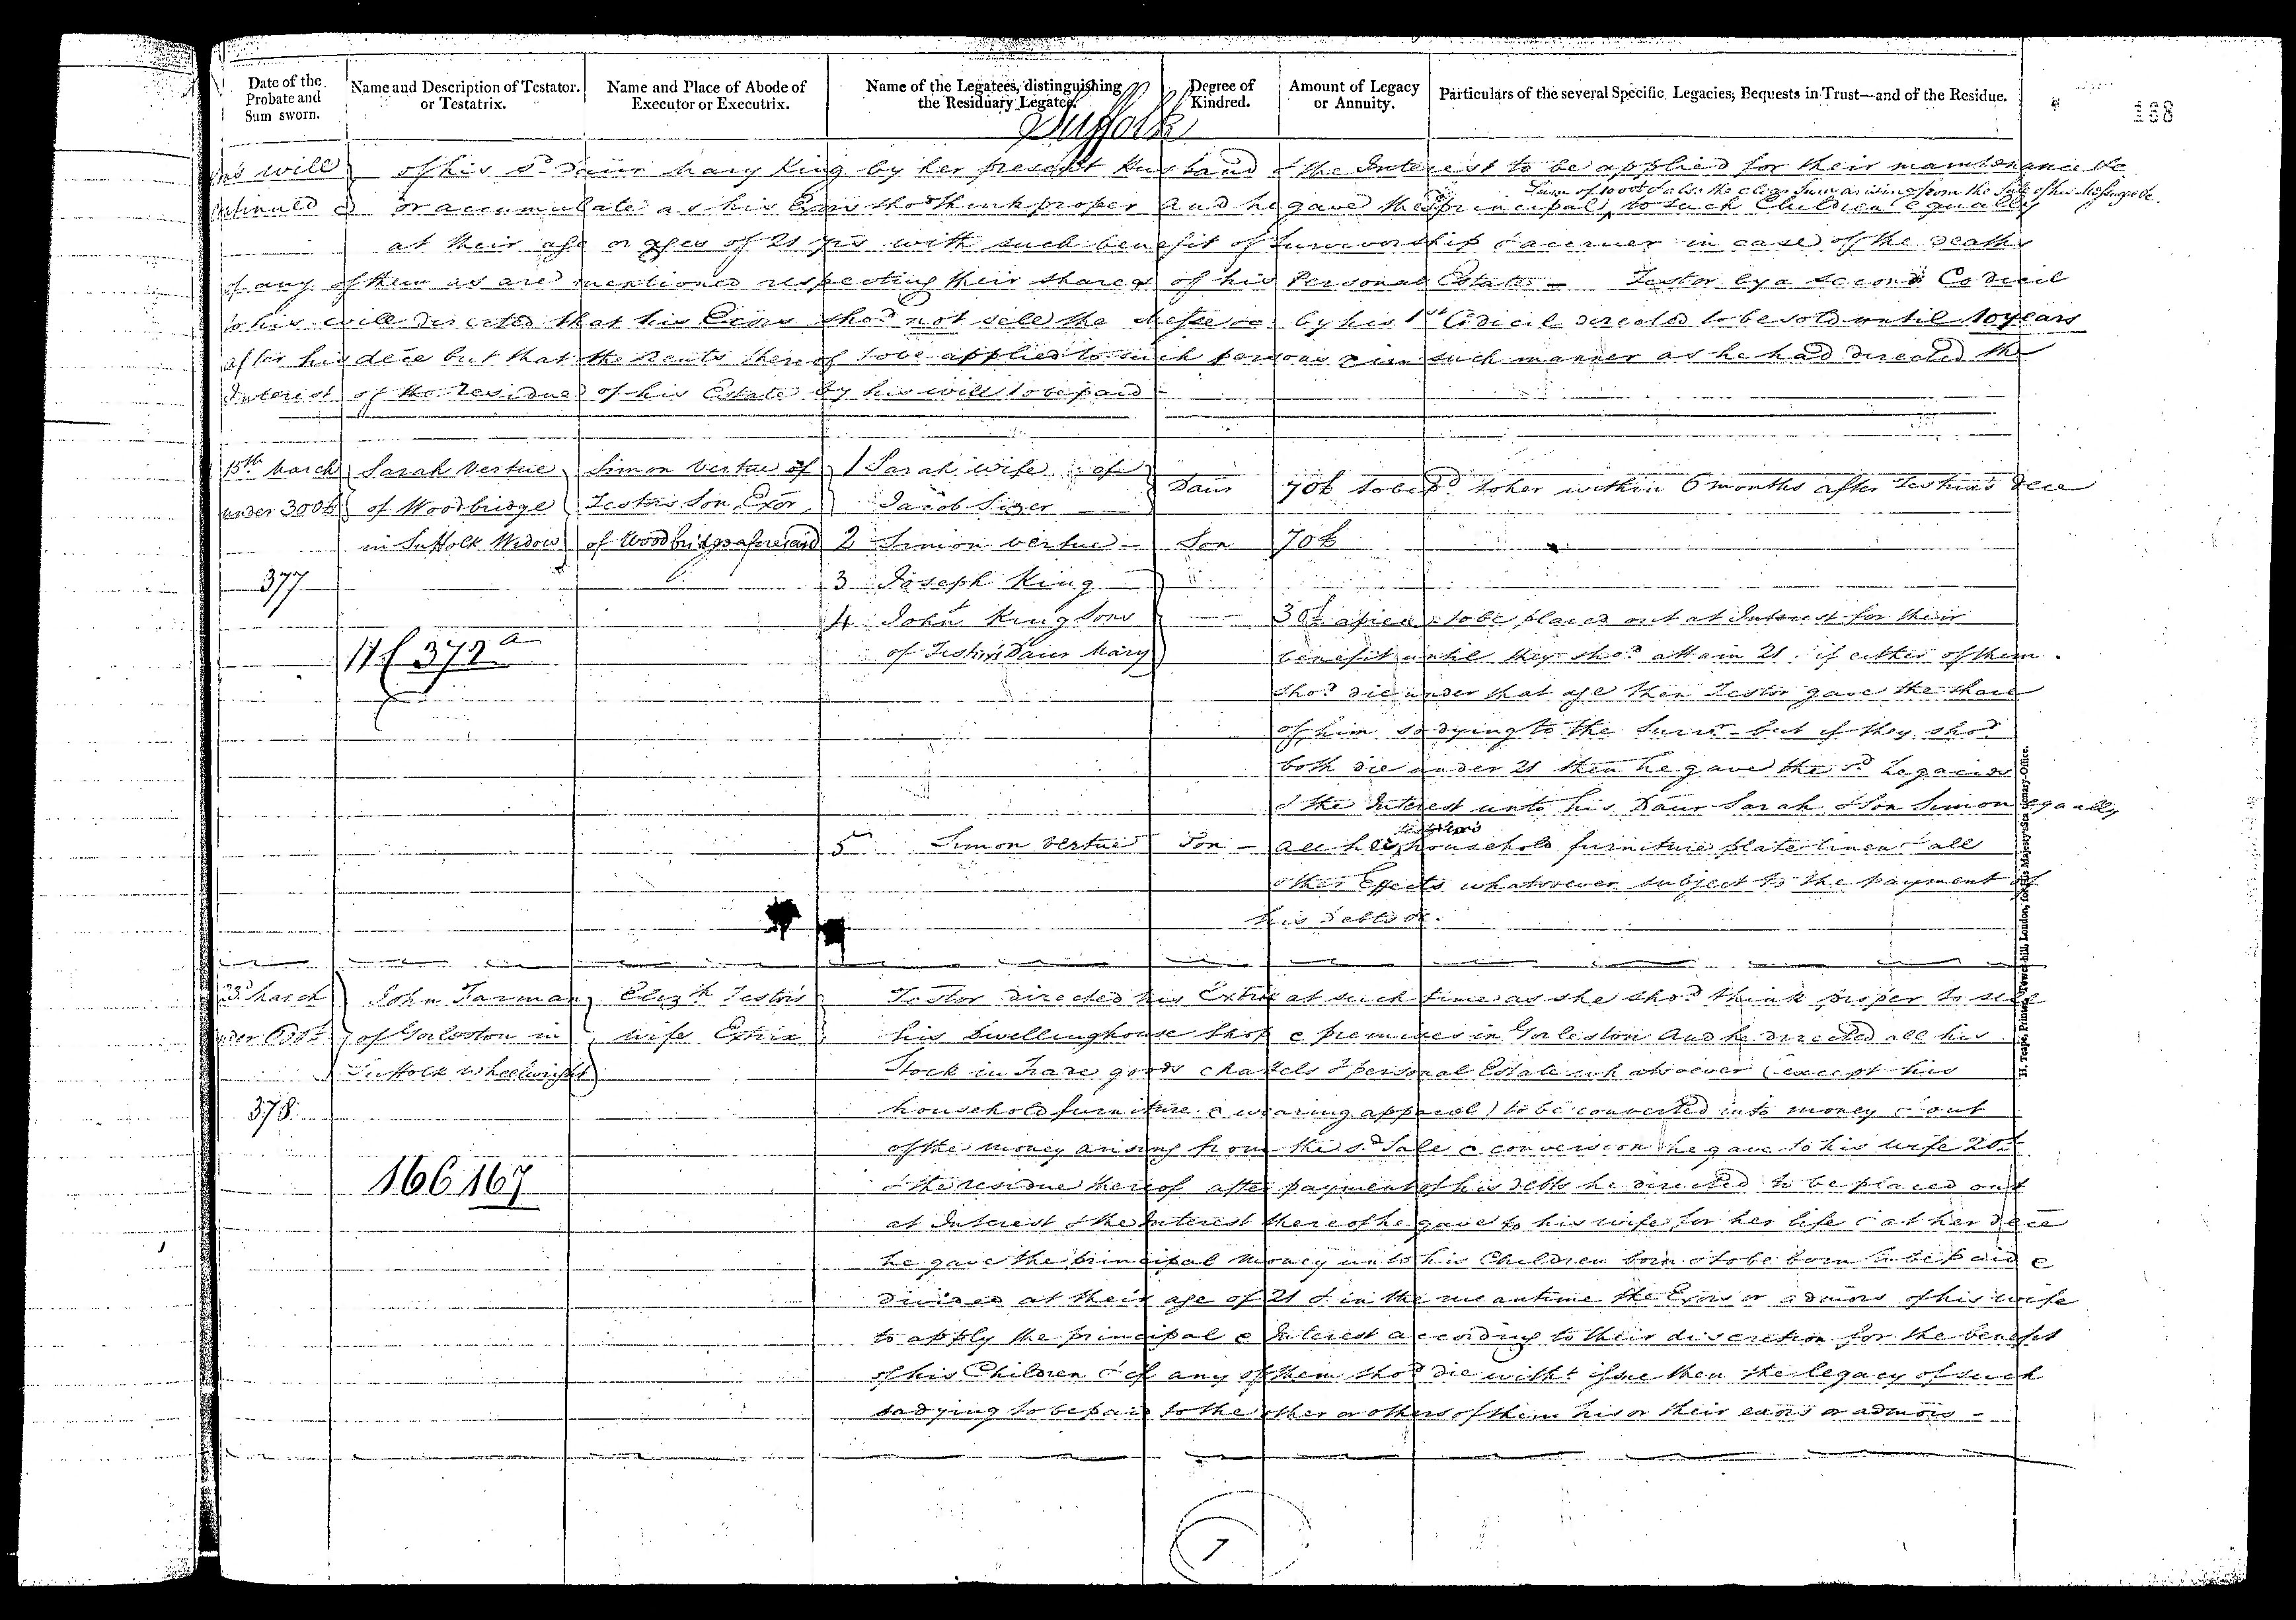 Date of the Probate and Sum sworn.
Name and Description of Testator. or Testatrix.
Name and Place of Abode of Executor or Executrix.
Name of the Legatees, distinguishing the Residuary Legatee.
Degree of Kindred.
Amount of Legacy or Annuity.
Particulars of the several Specific Legacies, Bequests in Trust—and of the Residue.
168
Suffolk
will of his sd Daur Mary King by her present Husband & the Interest to be applied for their maintenance &c
or accumulate as his Exors shod think proper and he gave the sd principal Sum of 100£ & also the clear sum arising from the Sale of his Messuage &c. to such Children equally
at their age or ages of 21 yrs with such benefit of survivorship & accruer in case of the deaths
of any of them as are mentioned respecting their shares of his Personal Estate — Testor by a second Codicil
to his will directed that his Exors shod not sell the Messe &c by his 1st Codicil directed to be sold until 10 years
after his dece but that the Rents thereof to be applied to such persons & in such manner as he had directed the
Interest of the residue of his Estate by his will to be paid
15th March
under 300£
377
Sarah Vertue
of Woodbridge
in Suffolk Widow
372a
Simon Vertue of
Testors Son Exor
of Woodbridge aforesaid
1 Sarah wife of
Jacob Sizer
Daur
70£ to be pd to her within 6 months after Testrix's dece
2 Simon Vertue
Son
70£
3 Joseph King
4 John King Sons
of Testrix Daur Mary
30£ apiece to be placed out at Interest for their
benefit until they shod attain 21. if either of them
shod die under that age then Testor gave the share
of him so dying to the Survr but if they shod
both die under 21 then he gave the sd Legacies
& the Interest unto his Daur Sarah & Son Simon equally
5 Simon Vertue
Son
all her household furniture plate linen & all
other Effects whatsoever subject to the payment of
his debts &c.
3d March
378
John Tarman
of Gorleston in
Suffolk Wheelwright
166 167
Elizth Testors
wife Extrix
Testor directed his Extrix at such time as she shod think proper to sell
his Dwellinghouse Shop & premises in Gorleston And he directed all his
Stock in Trade goods chattels & personal Estate whatsoever (except his
household furniture & wearing apparel) to be converted into money & out
of the money arising from the sd Sale & conversion he gave to his wife 20£
& the residue thereof after payment of his debts he directed to be placed out
at Interest & the Interest thereof he gave to his wife for her life & at her dece
he gave the principal Money unto his Children born & to be born to be paid &
divided at their age of 21 & in the meantime the Exors or admors of his wife
to apply the principal & Interest according to their discretion for the benefit
of his Children & if any of them shod die witht issue then the legacy of such
so dying to be paid to the other or others of them his or their exors or admors —
7
H. Teape, Printer, Tower-hill, London, for His Majesty's Stationary-Office.